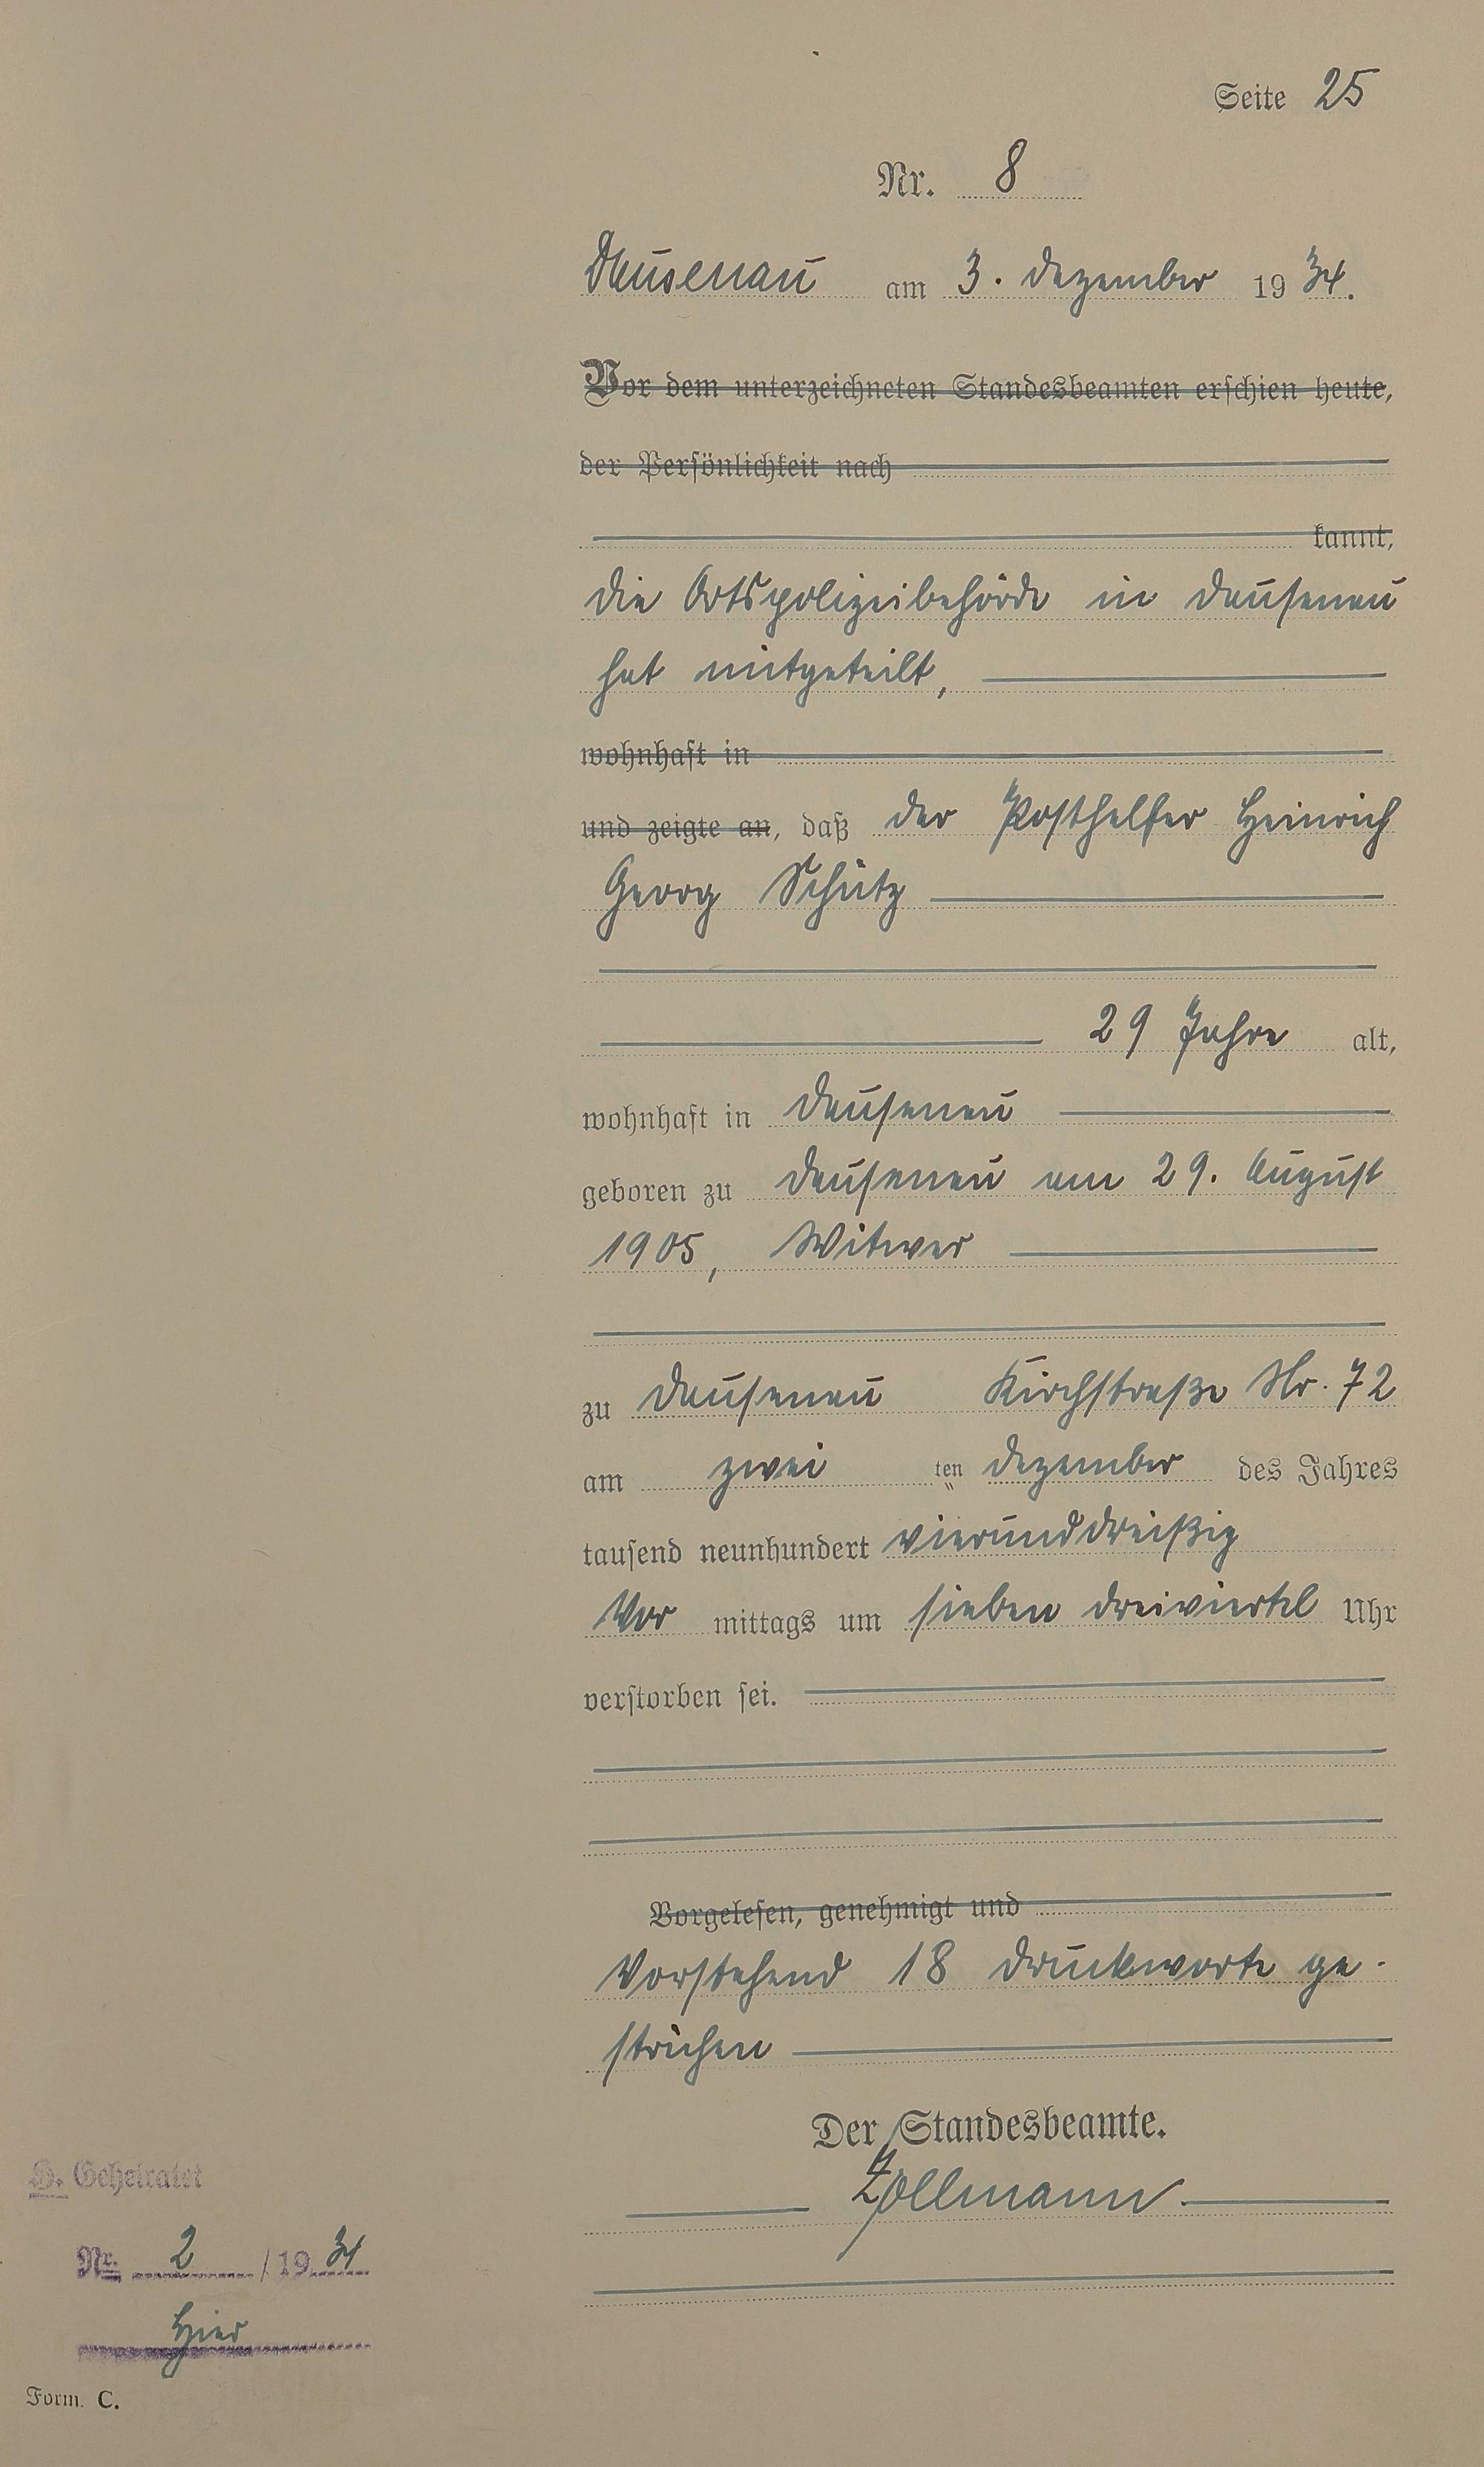 Seite 25
Nr. 8
Dausenau am 3. Dezember 1934.
Vor dem unterzeichneten Standesbeamten erschien heute,
der Persönlichkeit nach
kannt,
die Ortspolizeibehörde in Dausenau
hat mitgeteilt,
wohnhaft in
und zeigte an, daß der Posthelfer Heinrich
Georg Schütz
29 Jahre alt,
wohnhaft in Dausenau
geboren zu Dausenau am 29. August
1905, Witwer
zu Dausenau Kirchstraße Nr. 72
am zwei ten Dezember des Jahres
tausend neunhundert vierunddreißig
Vor mittags um sieben dreiviertel Uhr
verstorben sei.
Vorgelesen, genehmigt und
Vorstehend 18 Druckworte ge-
strichen
Der Standesbeamte.
Zollmann
H. Geheiratet
Nr. 2 /1931
Hier
Form. C.